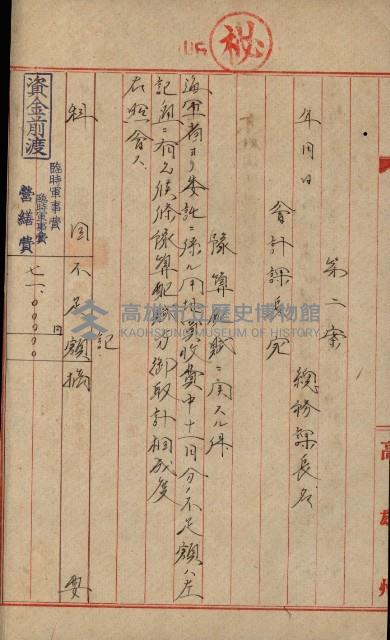 秘
第二案
年月日
總務課長名
會計課長宛
豫算配賦ニ関スル件
海軍省ヨリ委託ニ係ル用地買收費中十一月分ノ不足額ハ左
記ノ通ニ有之候條豫算配賦方御取計相成度
右照會ス
記
科目
不足額
摘要
資金前渡
臨時軍事費
臨時軍事費
營繕費
円
七一、〇〇〇〇〇
高雄市立歷史博物館
KAOHSIUNG MUSEUM OF HISTORY
高雄州